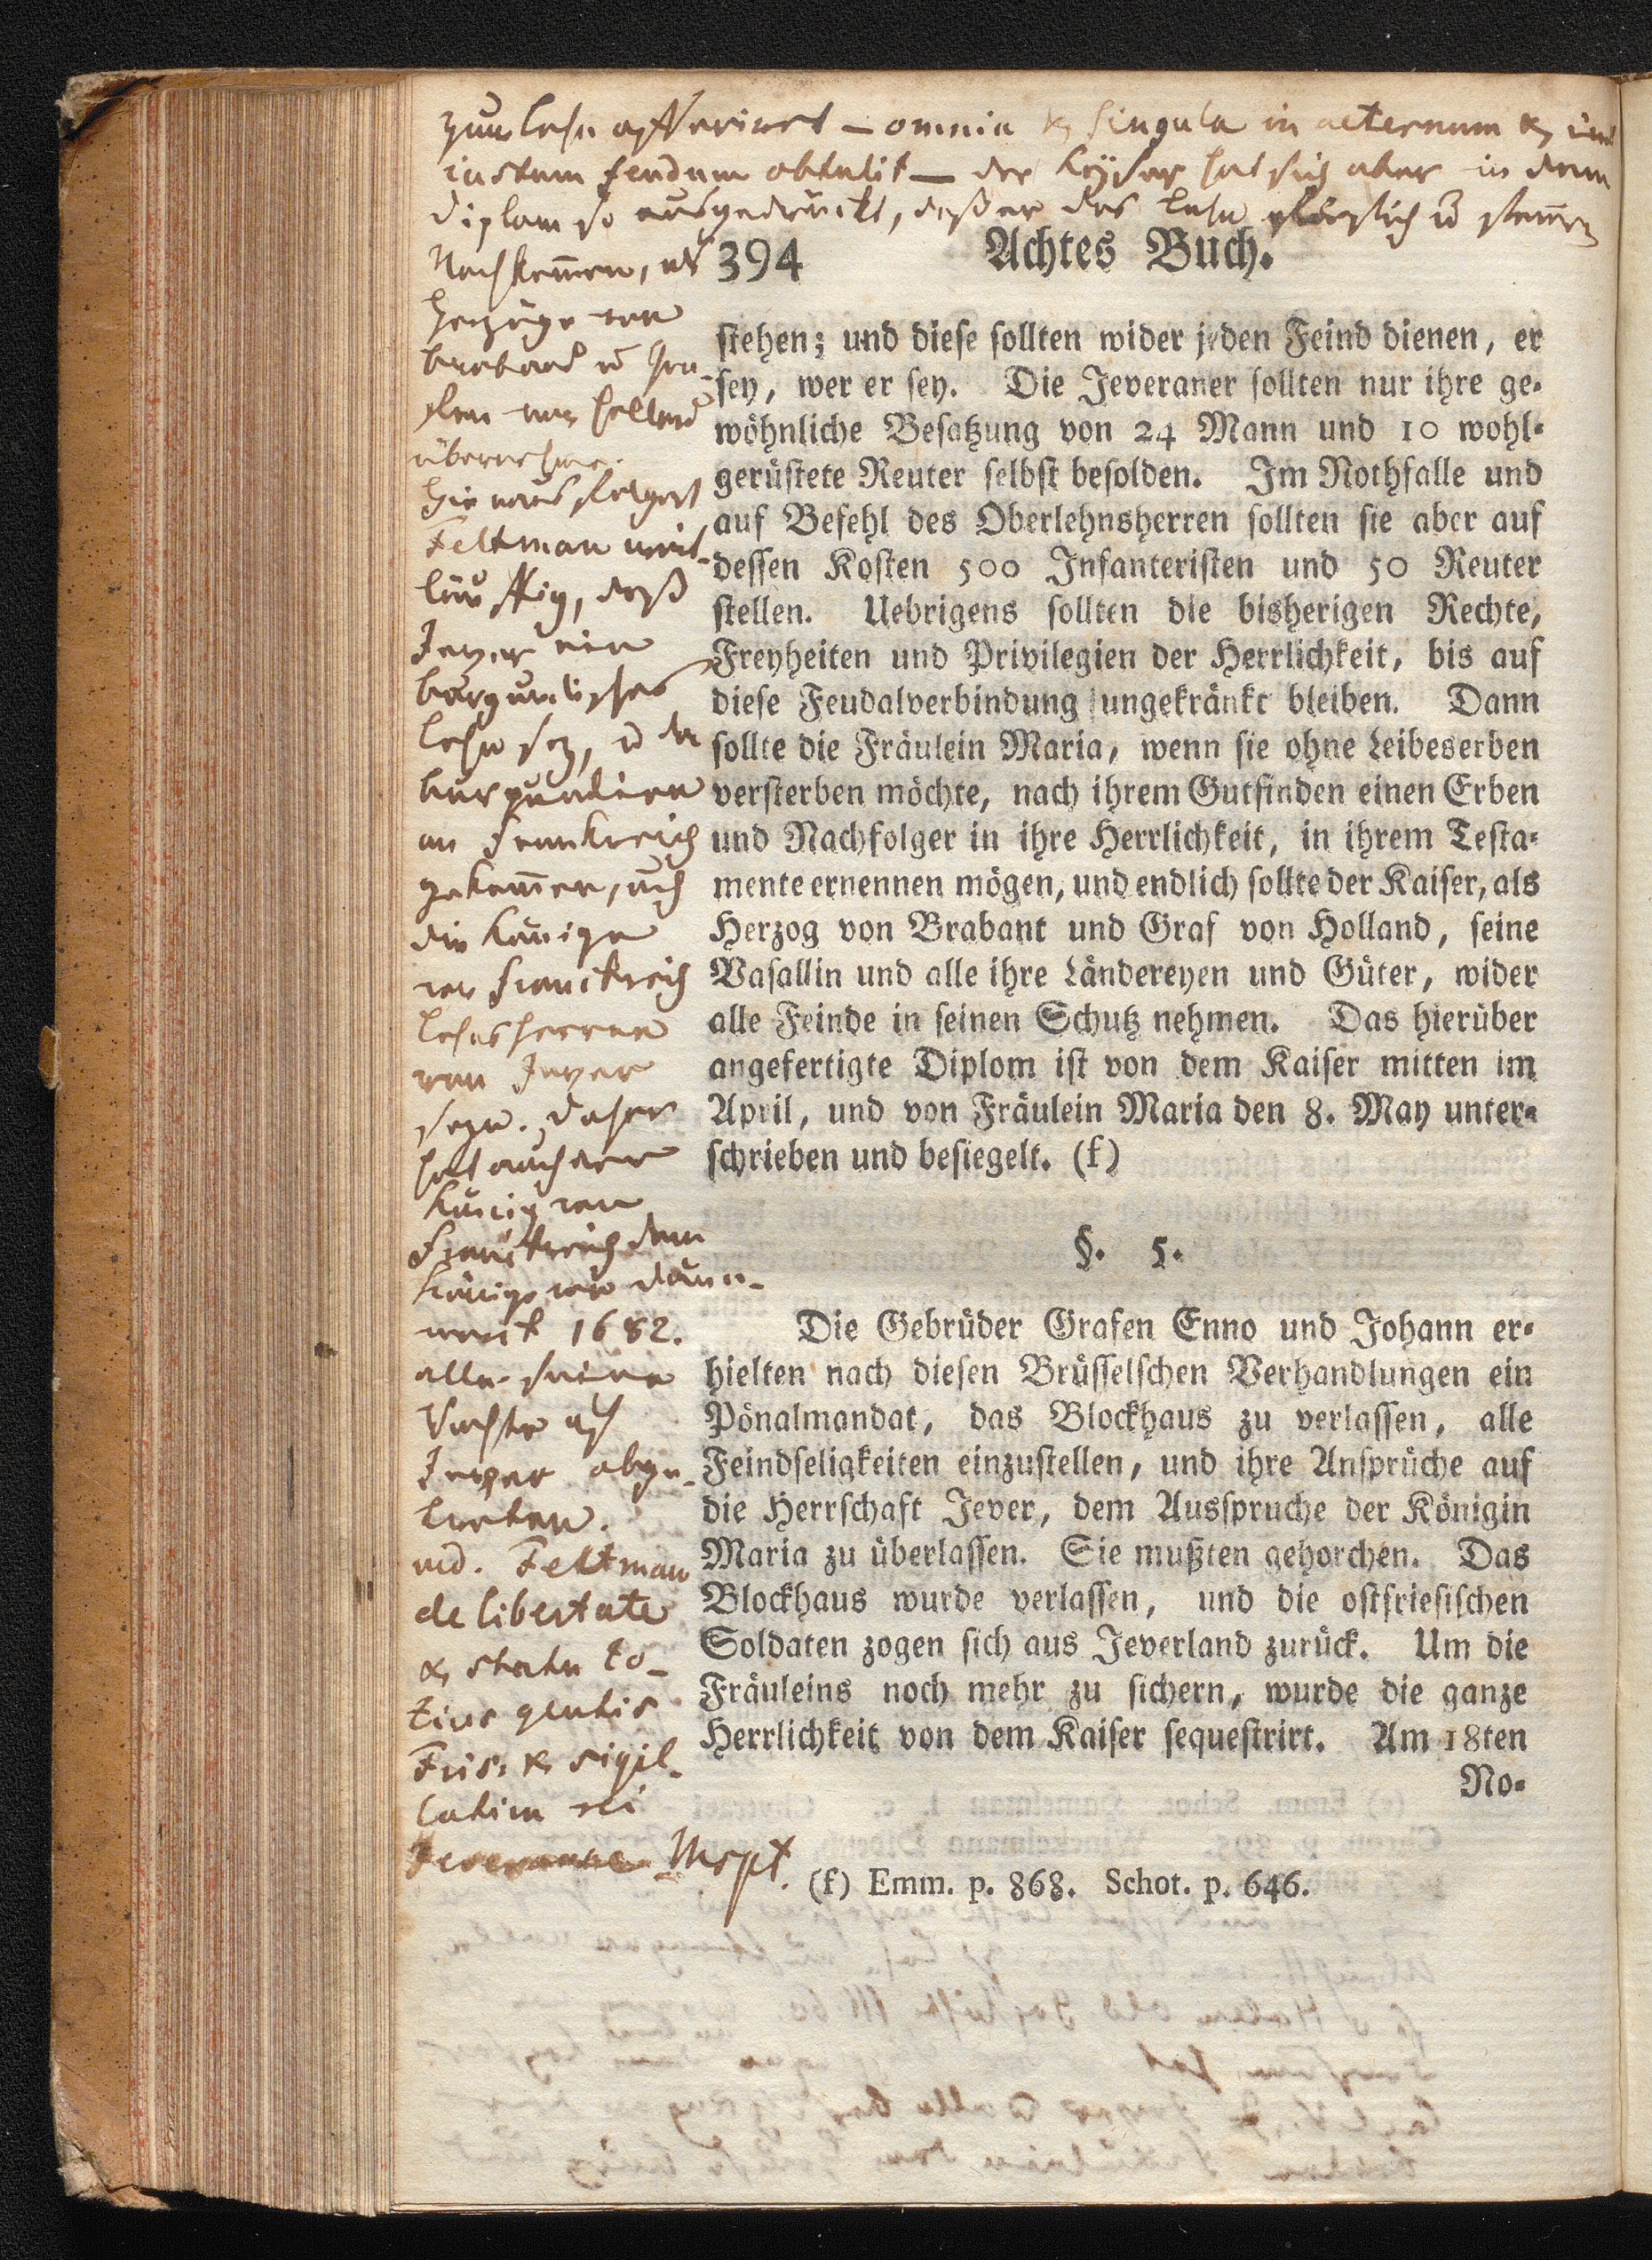 zum Lehn offeriret – omnia & singula in aeternum &
iustum feudum obtulit – der Kayser hat sich aber in dem
Diplom so ausgedruckt, daß er das Lehn
Nachkom̄en, als
Herzöge von
Braband u Gra-
fen von Holland
übernehme.
Hieraus folgert
Feltman weit-
läuftig, daß
Jever ein
burgundisches
Lehn sey, u da
Burgundien
an Frankreich
gekom̄en, auch
die Könige
von Franckreich
Lehnsherren
von Jever
seyn. Daher
hat auch der
König von
Franckreich dem
Könige von Dänn-
mark 1682.
alle seine
Rechte auf
Jever abge-
treten.
vid. Feltman
de libertate
& statu to-
tius gentis
Fris. & sigil-
latim
Jeveranae Mspt.
394 Achtes Buch.
stehen; und diese sollten wider jeden Feind dienen, er
sey, wer er sey. Die Jeveraner sollten nur ihre ge-
wöhnliche Besatzung von 24 Mann und 10 wohl-
gerüstete Reuter selbst besolden. Im Nothfalle und
auf Befehl des Oberlehnsherren sollten sie aber auf
dessen Kosten 500 Infanteristen und 50 Reuter
stellen. Uebrigens sollten die bisherigen Rechte,
Freyheiten und Privilegien der Herrlichkeit, bis auf
diese Feudalverbindung ungekränkt bleiben. Dann
sollte die Fräulein Maria, wenn sie ohne Leibeserben
versterben möchte, nach ihrem Gutfinden einen Erben
und Nachfolger in ihre Herrlichkeit, in ihrem Testa-
mente ernennen mögen, und endlich sollte der Kaiser, als
Herzog von Brabant und Graf von Holland, seine
Vasallin und alle ihre Ländereyen und Güter, wider
alle Feinde in seinen Schutz nehmen. Das hierüber
angefertigte Diplom ist von dem Kaiser mitten im
April, und von Fräulein Maria den 8. May unter-
schrieben und besiegelt. (f)
§. 5.
Die Gebrüder Grafen Enno und Johann er-
hielten nach diesen Brüsselschen Verhandlungen ein
Pönalmandat, das Blockhaus zu verlassen, alle
Feindseligkeiten einzustellen, und ihre Ansprüche auf
die Herrschaft Jever, dem Ausspruche der Königin
Maria zu überlassen. Sie mußten gehorchen. Das
Blockhaus wurde verlassen, und die ostfriesischen
Soldaten zogen sich aus Jeverland zurück. Um die
Fräuleins noch mehr zu sichern, wurde die ganze
Herrlichkeit von dem Kaiser sequestrirt. Am 18ten
No-
(f) Emm. p. 868. Schot. p. 646.